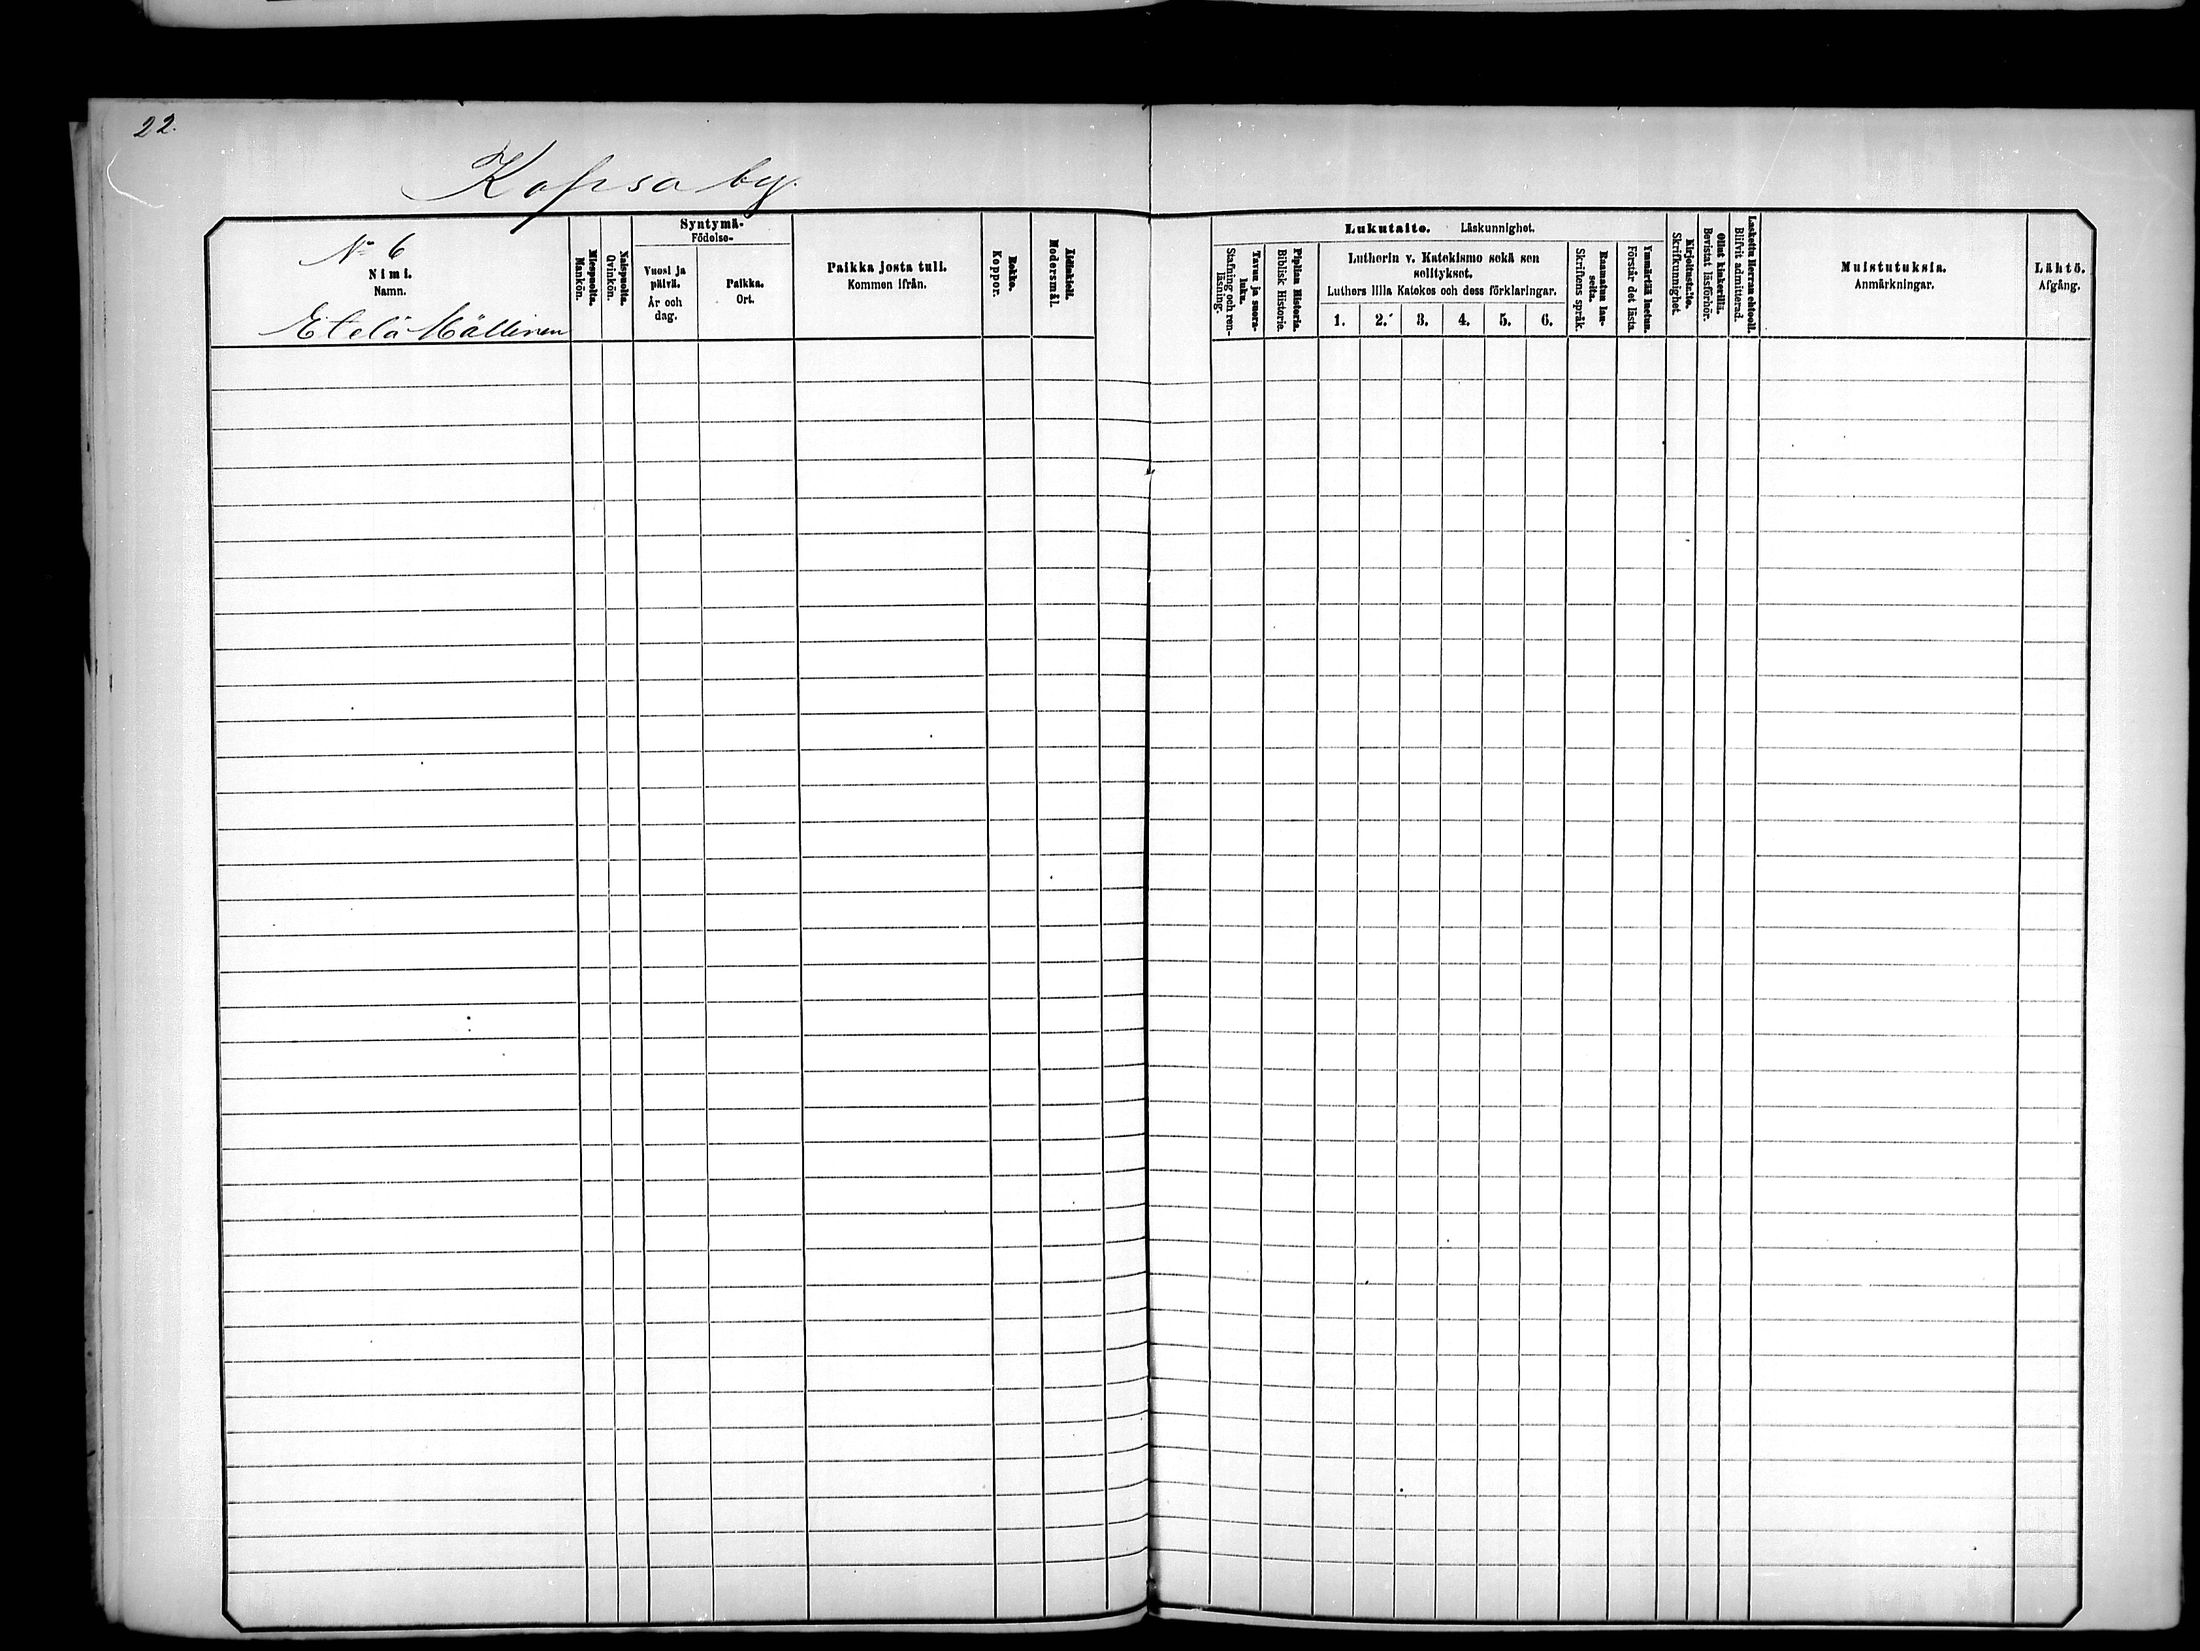 22.
Kapsa by.
No 6
Nimi.
Namn.
Etelä Hällinen
Miespuolia.
Mankön.
Naispuolia.
Qvinkön.
Syntymä-
Födelse-
Vuosi ja
päivä.
År och
dag.
Paikka.
Ort.
Paikka josta tuli.
Kommen ifrån.
Rokko.
Koppor.
Äidinkieli.
Modersmål.
Lukutaito. Läskunnighet.
Tavuu ja suora-
luku.
Stafning och ren-
läsning.
Piplian Historia.
Biblisk Historie.
Lutherin v. Katekismo sekä sen
selitykset.
Luthers lilla Katekes och dess förklaringar.
1. 2. 3. 4. 5. 6.
Raamatun lau-
seita.
Skriftens språk.
Ymmärtää luetun.
Förstår det lästa.
Kirjoitustaito.
Skrifkunnighet.
Ollut kinkerillä.
Bevistat läsförhör.
Laskettu Herran ehtool.
Blifvit admitterad.
Muistutuksia.
Anmärkningar.
Lähtö.
Afgång.